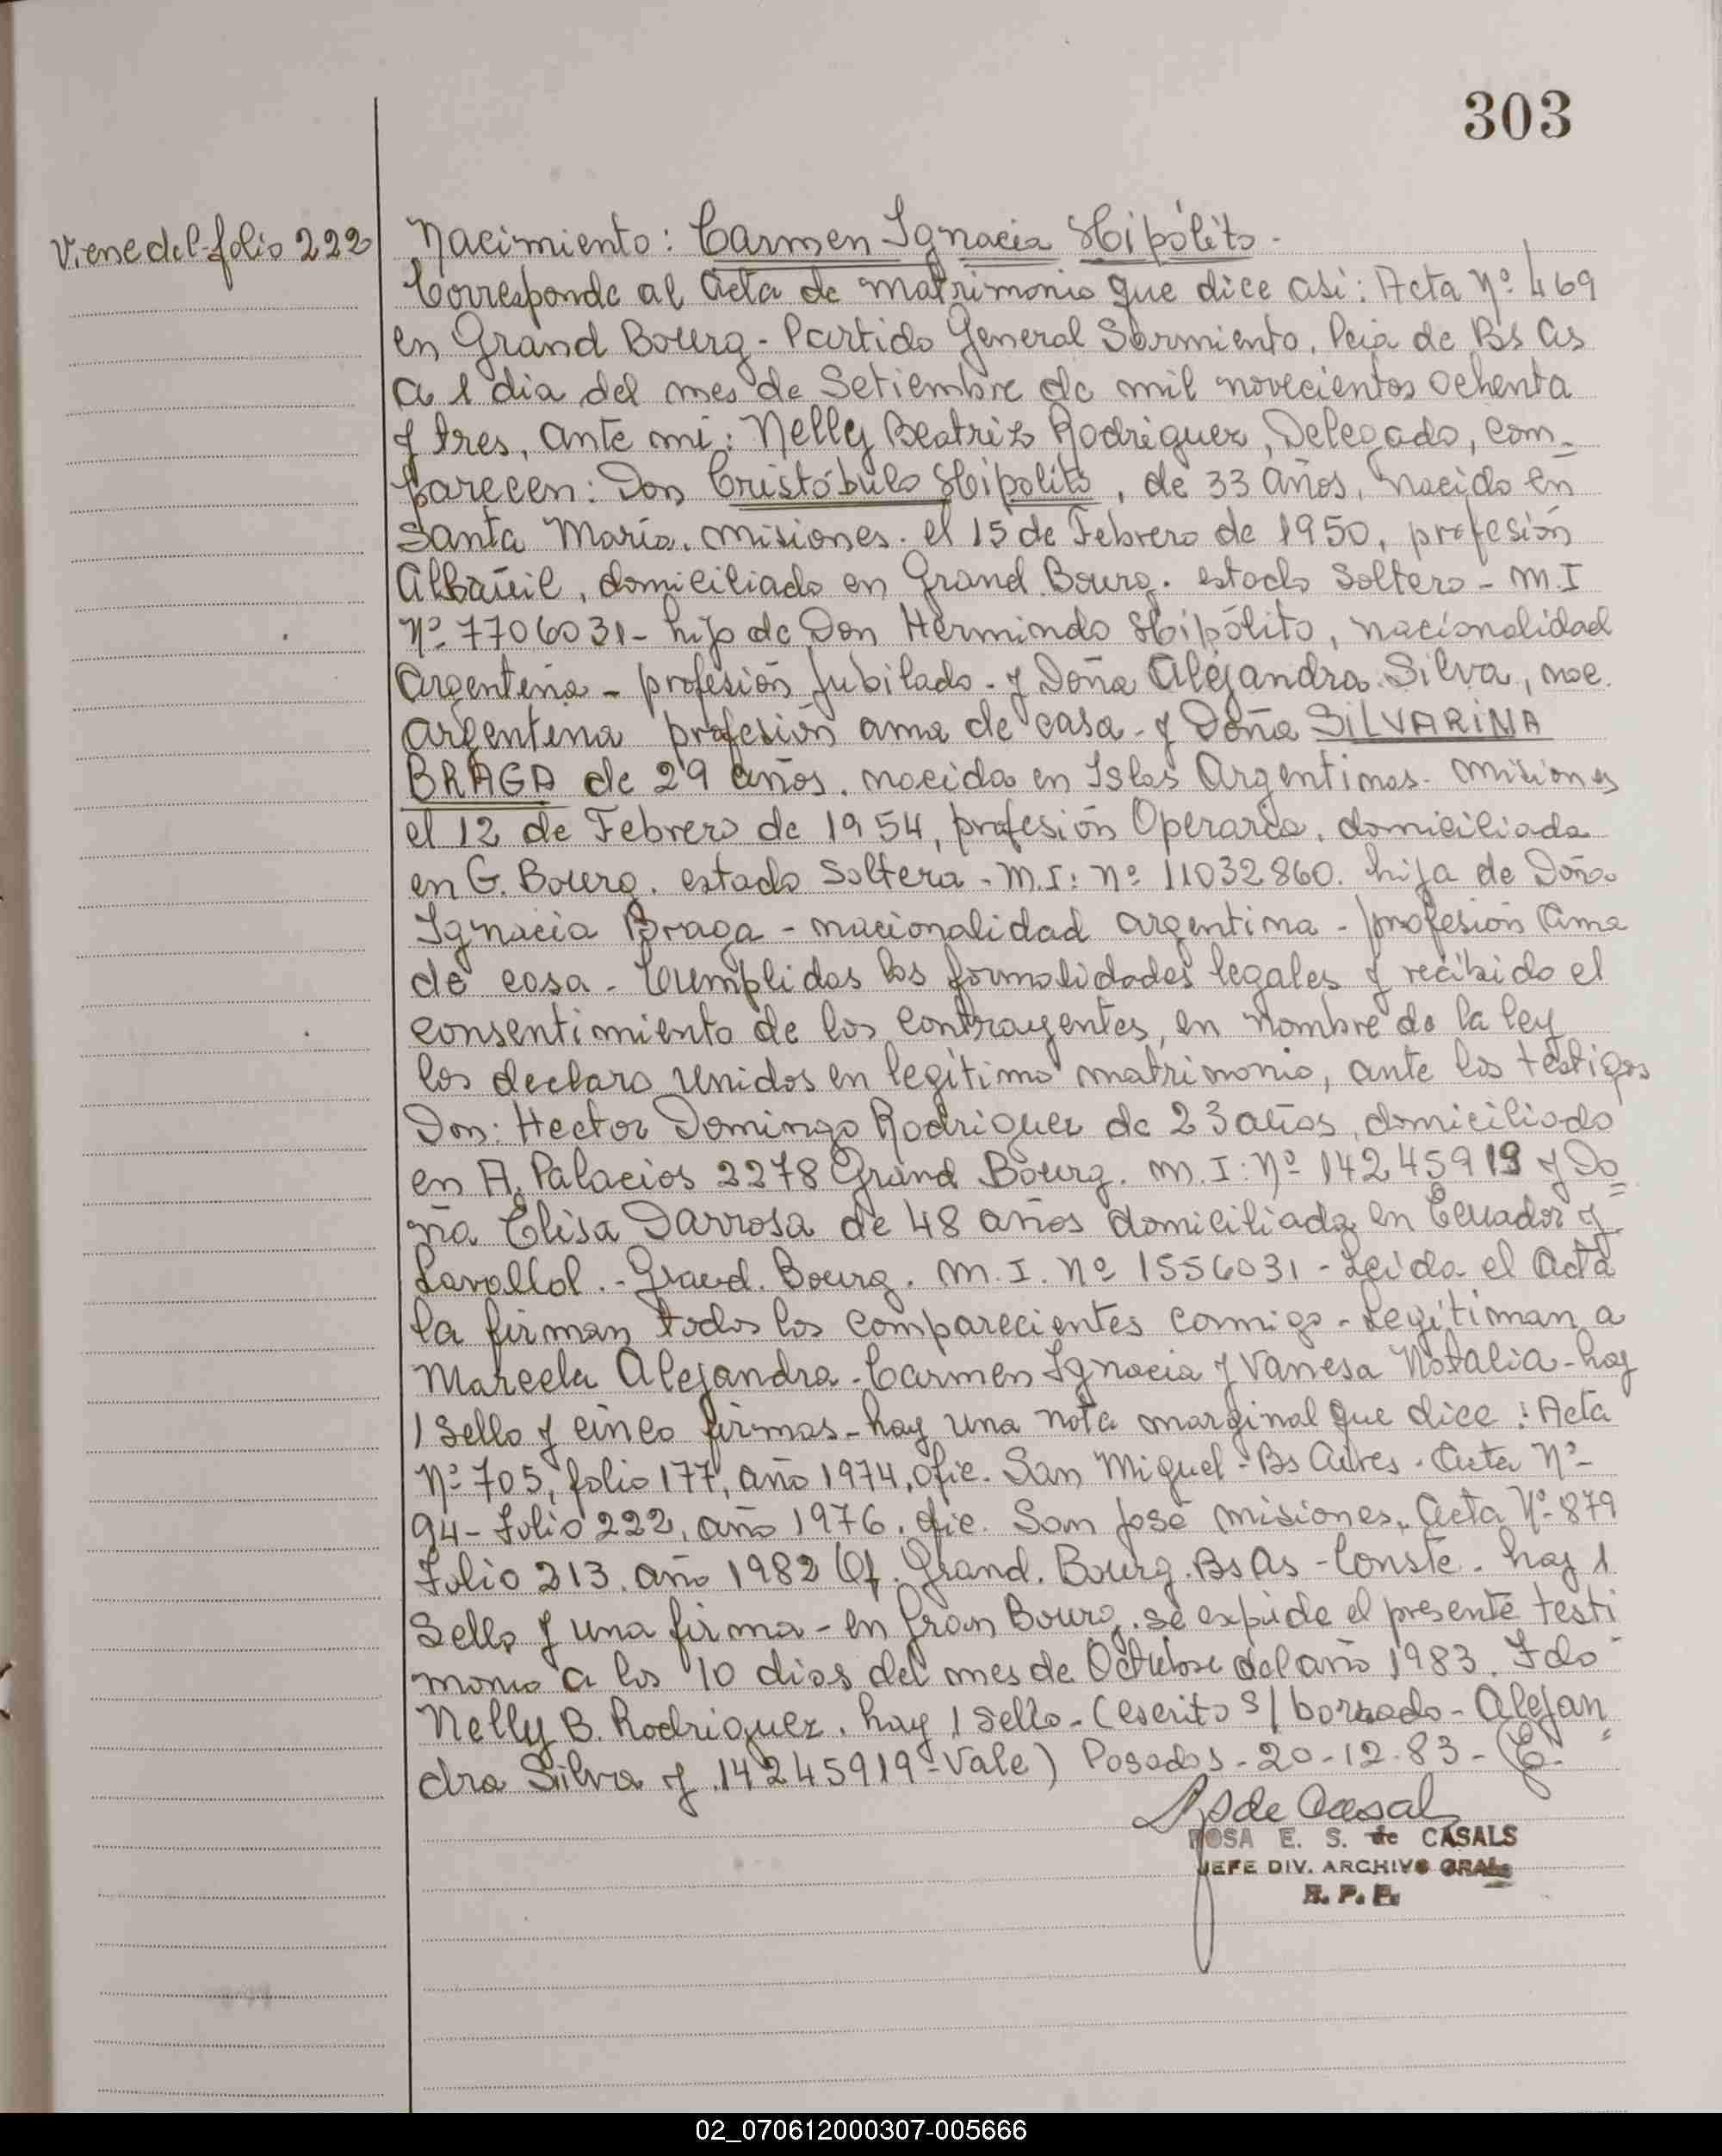 303
Viene del folio 222
Nacimiento: Carmen Ignacia Hipólito.
Corresponde al acta de matrimonio que dice asi: Acta Nº 469
en Grand Bourg - Partido General Sarmiento. Pcia de Bs As
a 1 dia del mes de Setiembre de mil novecientos ochenta
y tres, ante mi: Nelly Beatriz Rodriguez, Delegado, com=
parecen: Don Cristóbulo Hipolito, de 33 años, nacido en
Santa María. misiones. el 15 de Febrero de 1950, profesión
Albañil, domiciliado en Grand Bourg. estado soltero - M.I
Nº 7706031 - hijo de Don Hermindo Hipólito, nacionalidad
Argentina - profesión Jubilado - y Doña Alejandra Silva, nac.
argentina profesión ama de casa - y Doña SILVARINA
BRAGA de 29 años. nacida en Islas Argentinas - misiones
el 12 de Febrero de 1954, profesión Operaria, domiciliada
en G. Bourg. estado soltera - M.I: nº 11032860. hija de Doña
Ignacia Braga - nacionalidad argentina - profesión Ama
de casa - Cumplidas las formalidades legales y recibido el
consentimiento de los contrayentes, en nombre de la ley
los declaro unidos en legítimo matrimonio, ante los testigos
Don: Hector Domingo Rodriguez de 23 años, domiciliado
en A. Palacios 2278 Grand Bourg. M.I: Nº 14245919 y Do=
ña Elisa Darrosa de 48 años domiciliada en Ecuador y
Lavallol. - Grand. Bourg. M.I. nº 1556031 - Leida el Acta
la firman todos los comparecientes conmigo - Legitiman a
Marcela Alejandra - Carmen Ignacia y Vanesa Natalia - hay
1 sello y cinco firmas - hay una nota marginal que dice: Acta
Nº 705, folio 177, año 1974, ofic. San Miguel - Bs Aires. Acta Nº-
94 - folio 222, año 1976. ofic. San José misiones. Acta Nº 879
Folio 213. año 1982 Of. Grand. Bourg. Bs As - Conste. hay 1
Sello y una firma - en Gran Bourg. se expide el presente testi
monio a los 10 dias del mes de Octubre del año 1983. Fdo
Nelly B. Rodriguez. hay 1 sello - (escrito s/ borrado - Alejan=
dra Silva y 14245919 - Vale) Posadas - 20-12-83 -
de Casals
ROSA E. S. de CASALS
JEFE DIV. ARCHIVO GRAL
R. P. P.
02_070612000307-005666